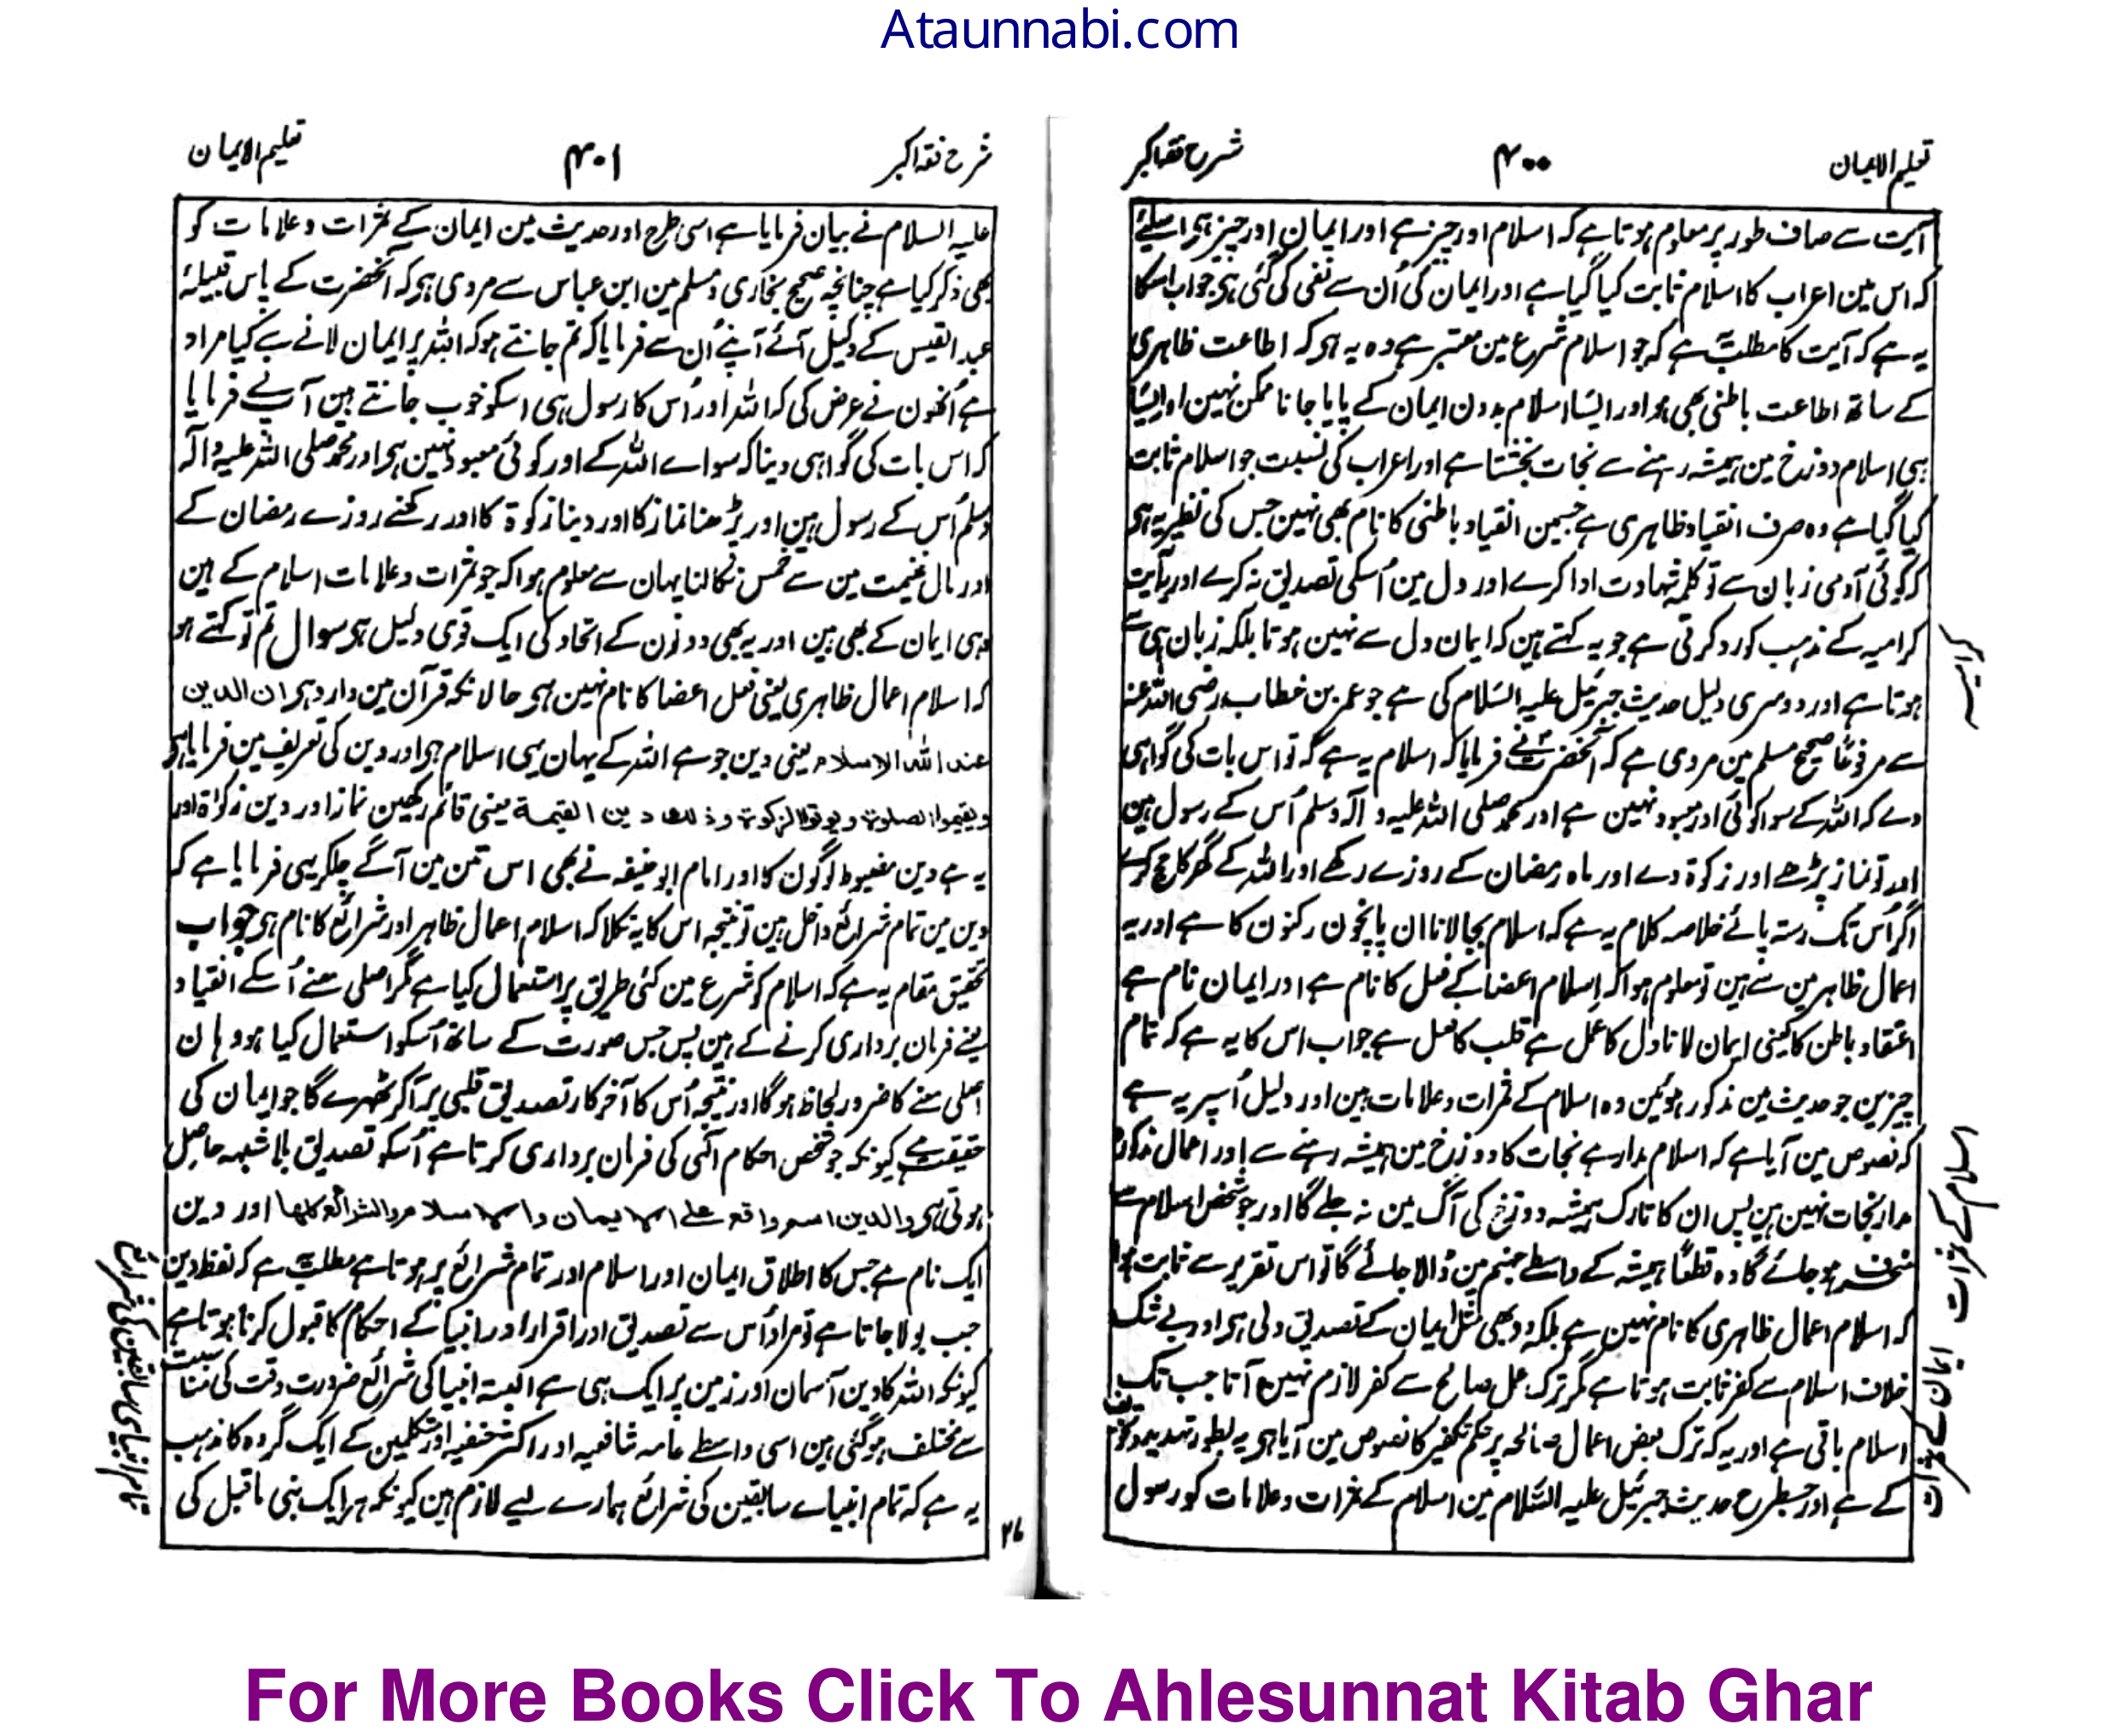 Ataunnabi.com
تعلیم الایمان
۴۰۰
شرح فقہ اکبر
آیت سے صاف طور پر معلوم ہوتا ہے کہ اسلام اور چیز ہے اور ایمان اور چیز ہی اسلیے
کہ اس مین اعراب کا اسلام ثابت کیا گیا ہے اور ایمان کی اُن سے نفی کی گئی ہی جواب اسکا
یہ ہے کہ آیت کا مطلب یہ ہے کہ جو اسلام شرع مین معتبر ہے وہ یہ ہی کہ اطاعت ظاہری
کے ساتھ اطاعت باطنی بھی ہو اور ایسا اسلام بدون ایمان کے پایا جانا ممکن نہین اور ایسا
ہی اسلام دوزخ مین ہمیشہ رہنے سے نجات بخشتا ہے اور اعراب کی نسبت جو اسلام ثابت
کیا گیا ہے وہ صرف انقیاد ظاہری ہے جسمین انقیاد باطنی کا نام بھی نہین جس کی نظیر یہ ہی
کہ کوئی آدمی زبان سے تو کلمہ شہادت ادا کرے اور دل مین اُسکی تصدیق نہ کرے اور یہ آیت
کرامیہ کے مذہب کو رد کرتی ہے جو یہ کہتے ہین کہ ایمان دل سے نہین ہوتا بلکہ زبان ہی سے
ہوتا ہے اور دوسری دلیل حدیث جبرئیل علیہ السلام کی ہے جو عمر بن خطاب رضی اللہ عنہ
سے مرفوعًا صحیح مسلم مین مروی ہے کہ آنحضرت نے فرمایا کہ اسلام یہ ہے کہ تو اس بات کی گواہی
دے کہ اللہ کے سوا کوئی اور معبود نہین ہے اور محمد صلی اللہ علیہ و آلہ وسلم اُس کے رسول ہین
اور تو نماز پڑھے اور زکوۃ دے اور ماہ رمضان کے روزے رکھے اور اللہ کے گھر کا حج کرے
اگر اُس تک رستہ پائے خلاصہ کلام یہ ہے کہ اسلام بجا لانا ان پانچون رکنون کا ہے اور یہ
اعمال ظاہر مین سے ہین تو معلوم ہوا کہ اسلام اعضا کے فعل کا نام ہے اور ایمان نام ہے
اعتقاد باطن کا یعنی ایمان لانا دل کا عمل ہے قلب کا فعل ہے جواب اس کا یہ ہے کہ تمام
چیزین جو حدیث مین مذکور ہوئین وہ اسلام کے ثمرات و علامات ہین اور دلیل اُسپر یہ ہے
کہ نصوص مین آیا ہے کہ اسلام مدار ہے نجات کا دوزخ مین ہمیشہ رہنے سے اور اعمال مذکورہ
مدار نجات نہین ہین پس ان کا تارک ہمیشہ دوزخ کی آگ مین نہ جلے گا اور جو شخص اسلام سے
منحرف ہو جائے گا وہ قطعًا ہمیشہ کے واسطے جہنم مین ڈالا جائے گا تو اس تقریر سے ثابت ہوا
کہ اسلام اعمال ظاہری کا نام نہین ہے بلکہ وہ بھی مثل ایمان کے تصدیق دلی ہی اور بے شک
خلاف اسلام سے کفر ثابت ہوتا ہے مگر ترک عمل صالح سے کفر لازم نہین آتا جب تک
اسلام باقی ہے اور یہ کہ ترک بعض اعمال صالحہ پر حکم تکفیر کا نصوص مین آیا ہی یہ بطور تہدید و تخویف
کے ہے اور جسطرح حدیث جبرئیل علیہ السلام مین اسلام کے ثمرات و علامات کو رسول
شرح فقہ اکبر
۴۰۱
تعلیم الایمان
علیہ السلام نے بیان فرمایا ہے اسی طرح اور حدیث مین ایمان کے ثمرات و علامات کو
بھی ذکر کیا ہے چنانچہ صحیح بخاری و مسلم مین ابن عباس سے مروی ہی کہ آنحضرت کے پاس قبیلۂ
عبد القیس کے وکیل آئے آپنے اُن سے فرمایا کہ تم جانتے ہو کہ اللہ پر ایمان لانے سے کیا مراد
ہے اُنھون نے عرض کی کہ اللہ اور اُس کا رسول ہی اسکو خوب جانتے ہین آپ نے فرمایا
کہ اس بات کی گواہی دینا کہ سواے اللہ کے اور کوئی معبود نہین ہی اور محمد صلی اللہ علیہ و آلہ
وسلم اُس کے رسول ہین اور پڑھنا نماز کا اور دینا زکوۃ کا اور رکھنے روزے رمضان کے
اور مال غنیمت مین سے خمس نکالنا یہان سے معلوم ہوا کہ جو ثمرات و علامات اسلام کے ہین
وہی ایمان کے بھی ہین اور یہ بھی دونون کے اتحاد کی ایک قوی دلیل ہی سوال تم تو کہتے ہو
کہ اسلام اعمال ظاہری یعنی فعل اعضا کا نام نہین ہی حالانکہ قرآن مین وارد ہی ان الدین
عند اللہ الاسلام یعنی دین جو ہے اللہ کے یہان یہی اسلام ہی اور دین کی تعریف مین فرمایا ہی
ویقیموا الصلوۃ ویوتوا الزکوۃ وذلک دین القیمۃ یعنی قائم رکھین نماز اور دین زکوٰۃ اور
یہ ہے دین مضبوط لوگون کا اور امام ابو حنیفہ نے بھی اس متن مین آگے چلکر یہی فرمایا ہے کہ
دین مین تمام شرائع داخل ہین تو نتیجہ اس کا یہ نکلا کہ اسلام اعمال ظاہر اور شرائع کا نام ہی جواب
تحقیق مقام یہ ہے کہ اسلام کو شرع مین کئی طریق پر استعمال کیا ہے مگر اصلی معنے اُسکے انقیاد
یعنے فرمان برداری کرنے کے ہین پس جس صورت کے ساتھ اُسکو استعمال کیا ہو وہان
اصلی معنے کا ضرور لحاظ ہوگا اور نتیجہ اُس کا آخر کار تصدیق قلبی پر آکر ٹھہرے گا جو ایمان کی
حقیقت ہے کیونکہ جو شخص احکام الٰہی کی فرمان برداری کرتا ہے اُسکو تصدیق بلا شبہہ حاصل
ہوتی ہی والدین اسم واقع علی الایمان والاسلام والشرائع کلہا اور دین
ایک نام ہے جس کا اطلاق ایمان اور اسلام اور تمام شرائع پر ہوتا ہے مطلب یہ ہے کہ لفظ دین
جب بولا جاتا ہے تو مراد اُس سے تصدیق اور اقرار اور انبیا کے احکام کا قبول کرنا ہوتا ہے
کیونکہ اللہ کا دین آسمان اور زمین پر ایک ہی ہے البتہ انبیا کی شرائع ضرورت وقت کی مناسبت
سے مختلف ہو گئی ہین اسی واسطے عامہ شافعیہ اور اکثر حنفیہ اور متکلمین کے ایک گروہ کا مذہب
یہ ہے کہ تمام انبیاے سابقین کی شرائع ہمارے لیے لازم ہین کیونکہ ہر ایک نبی ماقبل کی
تمام انبیای سابقین کی شرائع
۲۶
For More Books Click To Ahlesunnat Kitab Ghar